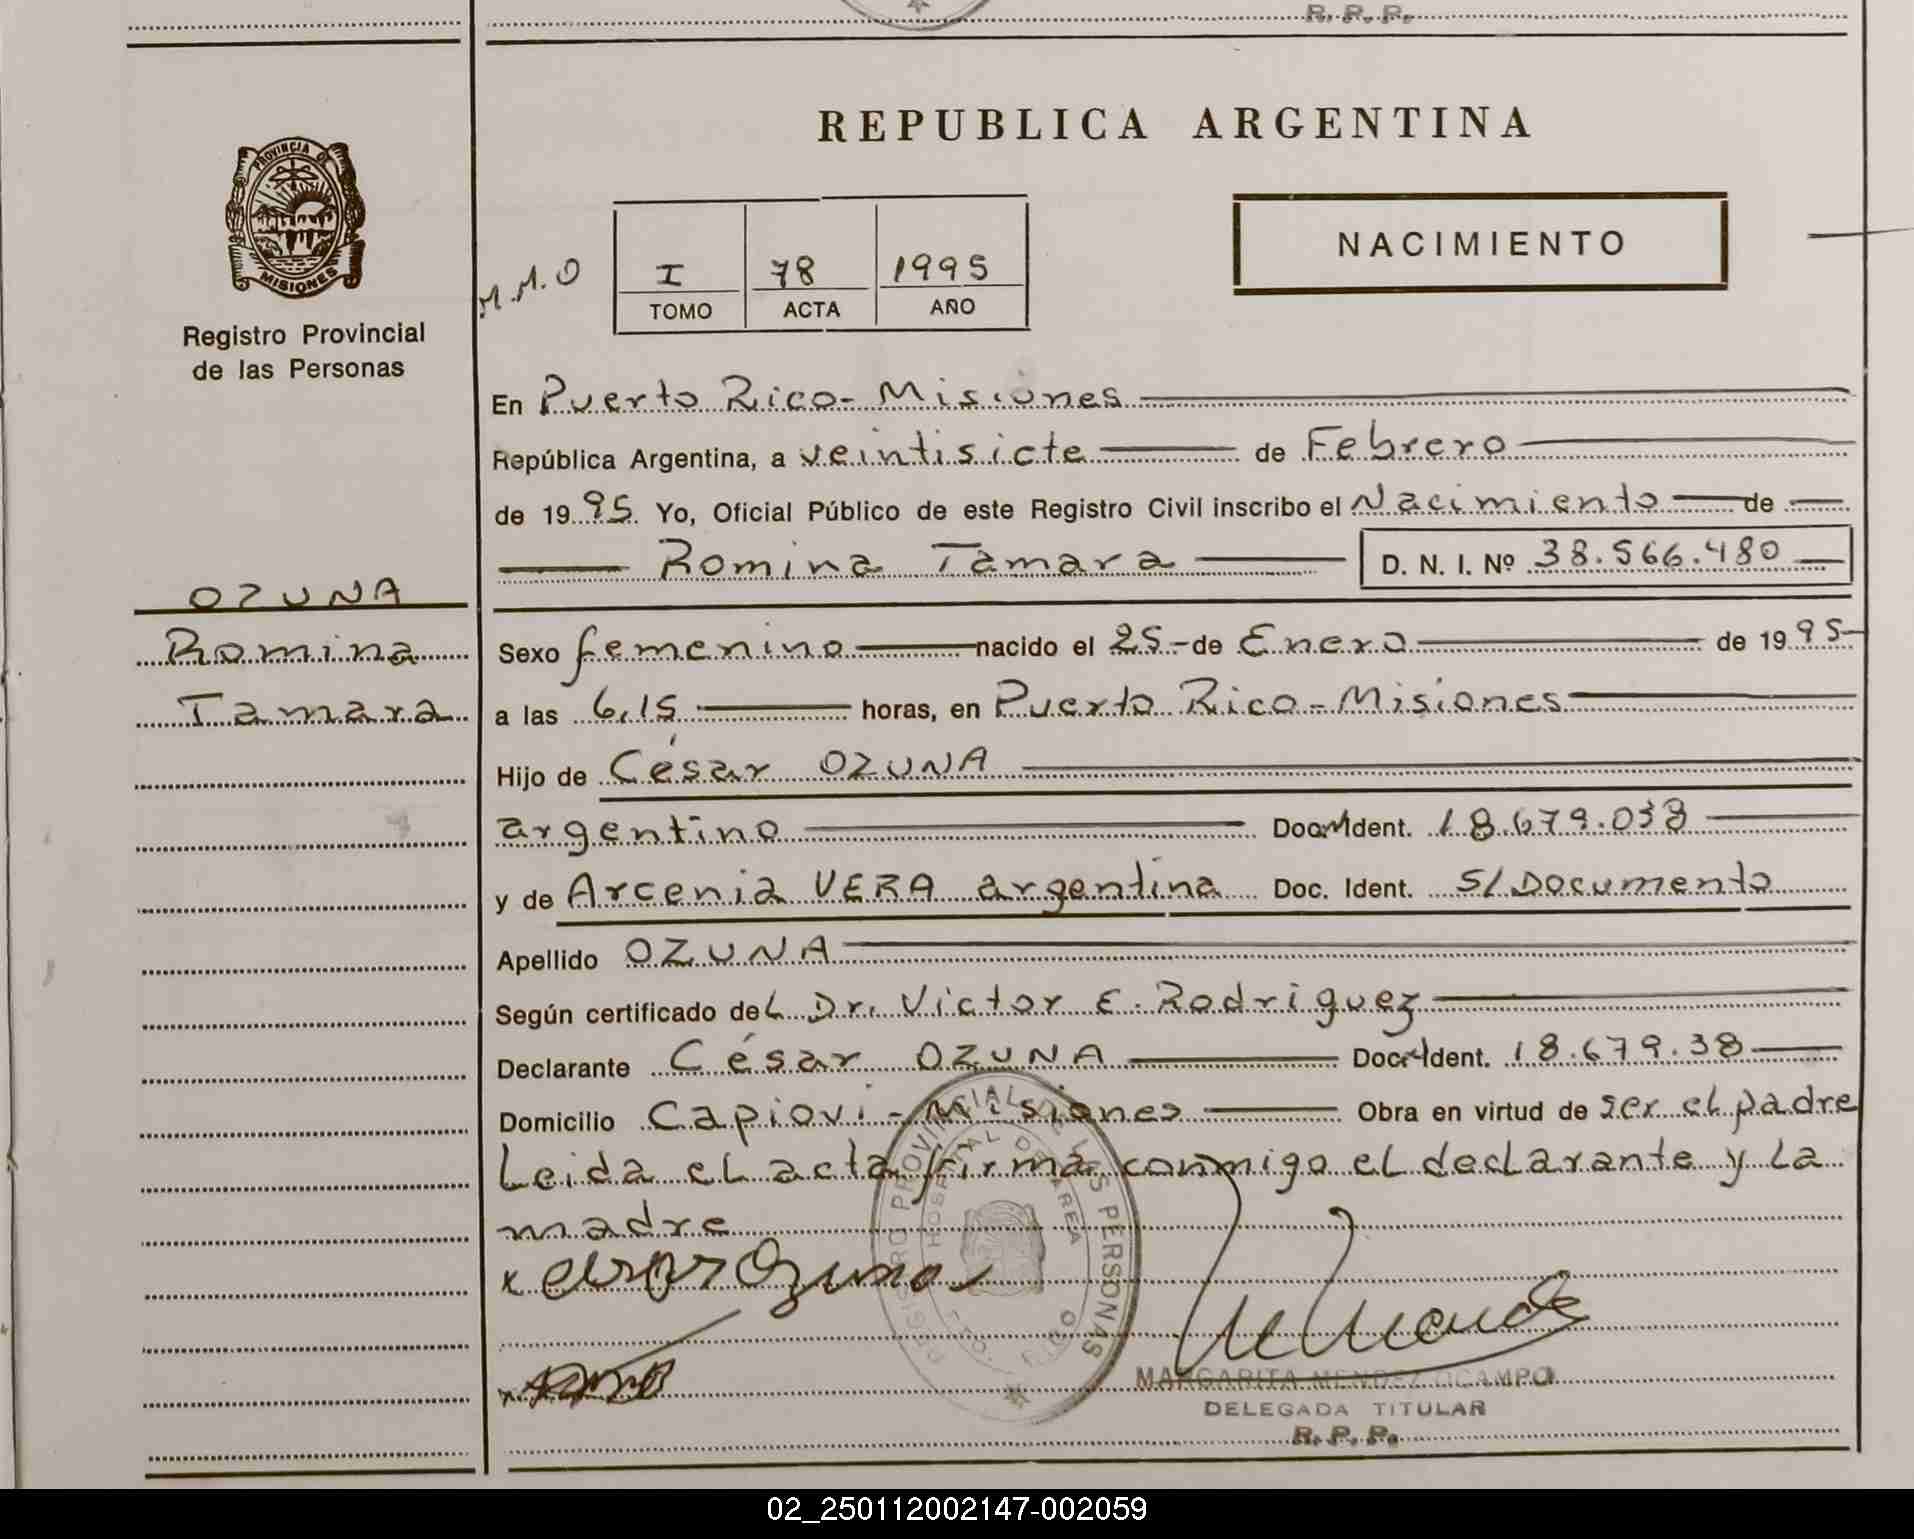 R. P. P.
REPUBLICA ARGENTINA
PROVINCIA DE
MISIONES
Registro Provincial
de las Personas
M.M.O
I 78 1995
TOMO ACTA AÑO
NACIMIENTO
En Puerto Rico - Misiones
República Argentina, a veintisiete de Febrero
de 1995 Yo, Oficial Público de este Registro Civil inscribo el Nacimiento de
Romina Tamara D. N. I. Nº 38.566.480
OZUNA
Romina
Tamara
Sexo femenino nacido el 25 - de Enero de 1995
a las 6,15 horas, en Puerto Rico - Misiones
Hijo de César OZUNA
argentino Doc. Ident. 18.679.038
y de Arcenia VERA argentina Doc. Ident. S/Documento
Apellido OZUNA
Según certificado del Dr. Victor E. Rodriguez
Declarante César OZUNA Doc. Ident. 18.679.38
Domicilio Capiovi - Misiones Obra en virtud de ser el padre
Leida el acta firma conmigo el declarante y la
madre
REGISTRO PROVINCIAL DE LAS PERSONAS
HOSPITAL DE AREA
PTO. RICO
x Cesar Ozuna
MARGARITA MENDEZ OCAMPO
DELEGADA TITULAR
R. P. P.
02_250112002147-002059